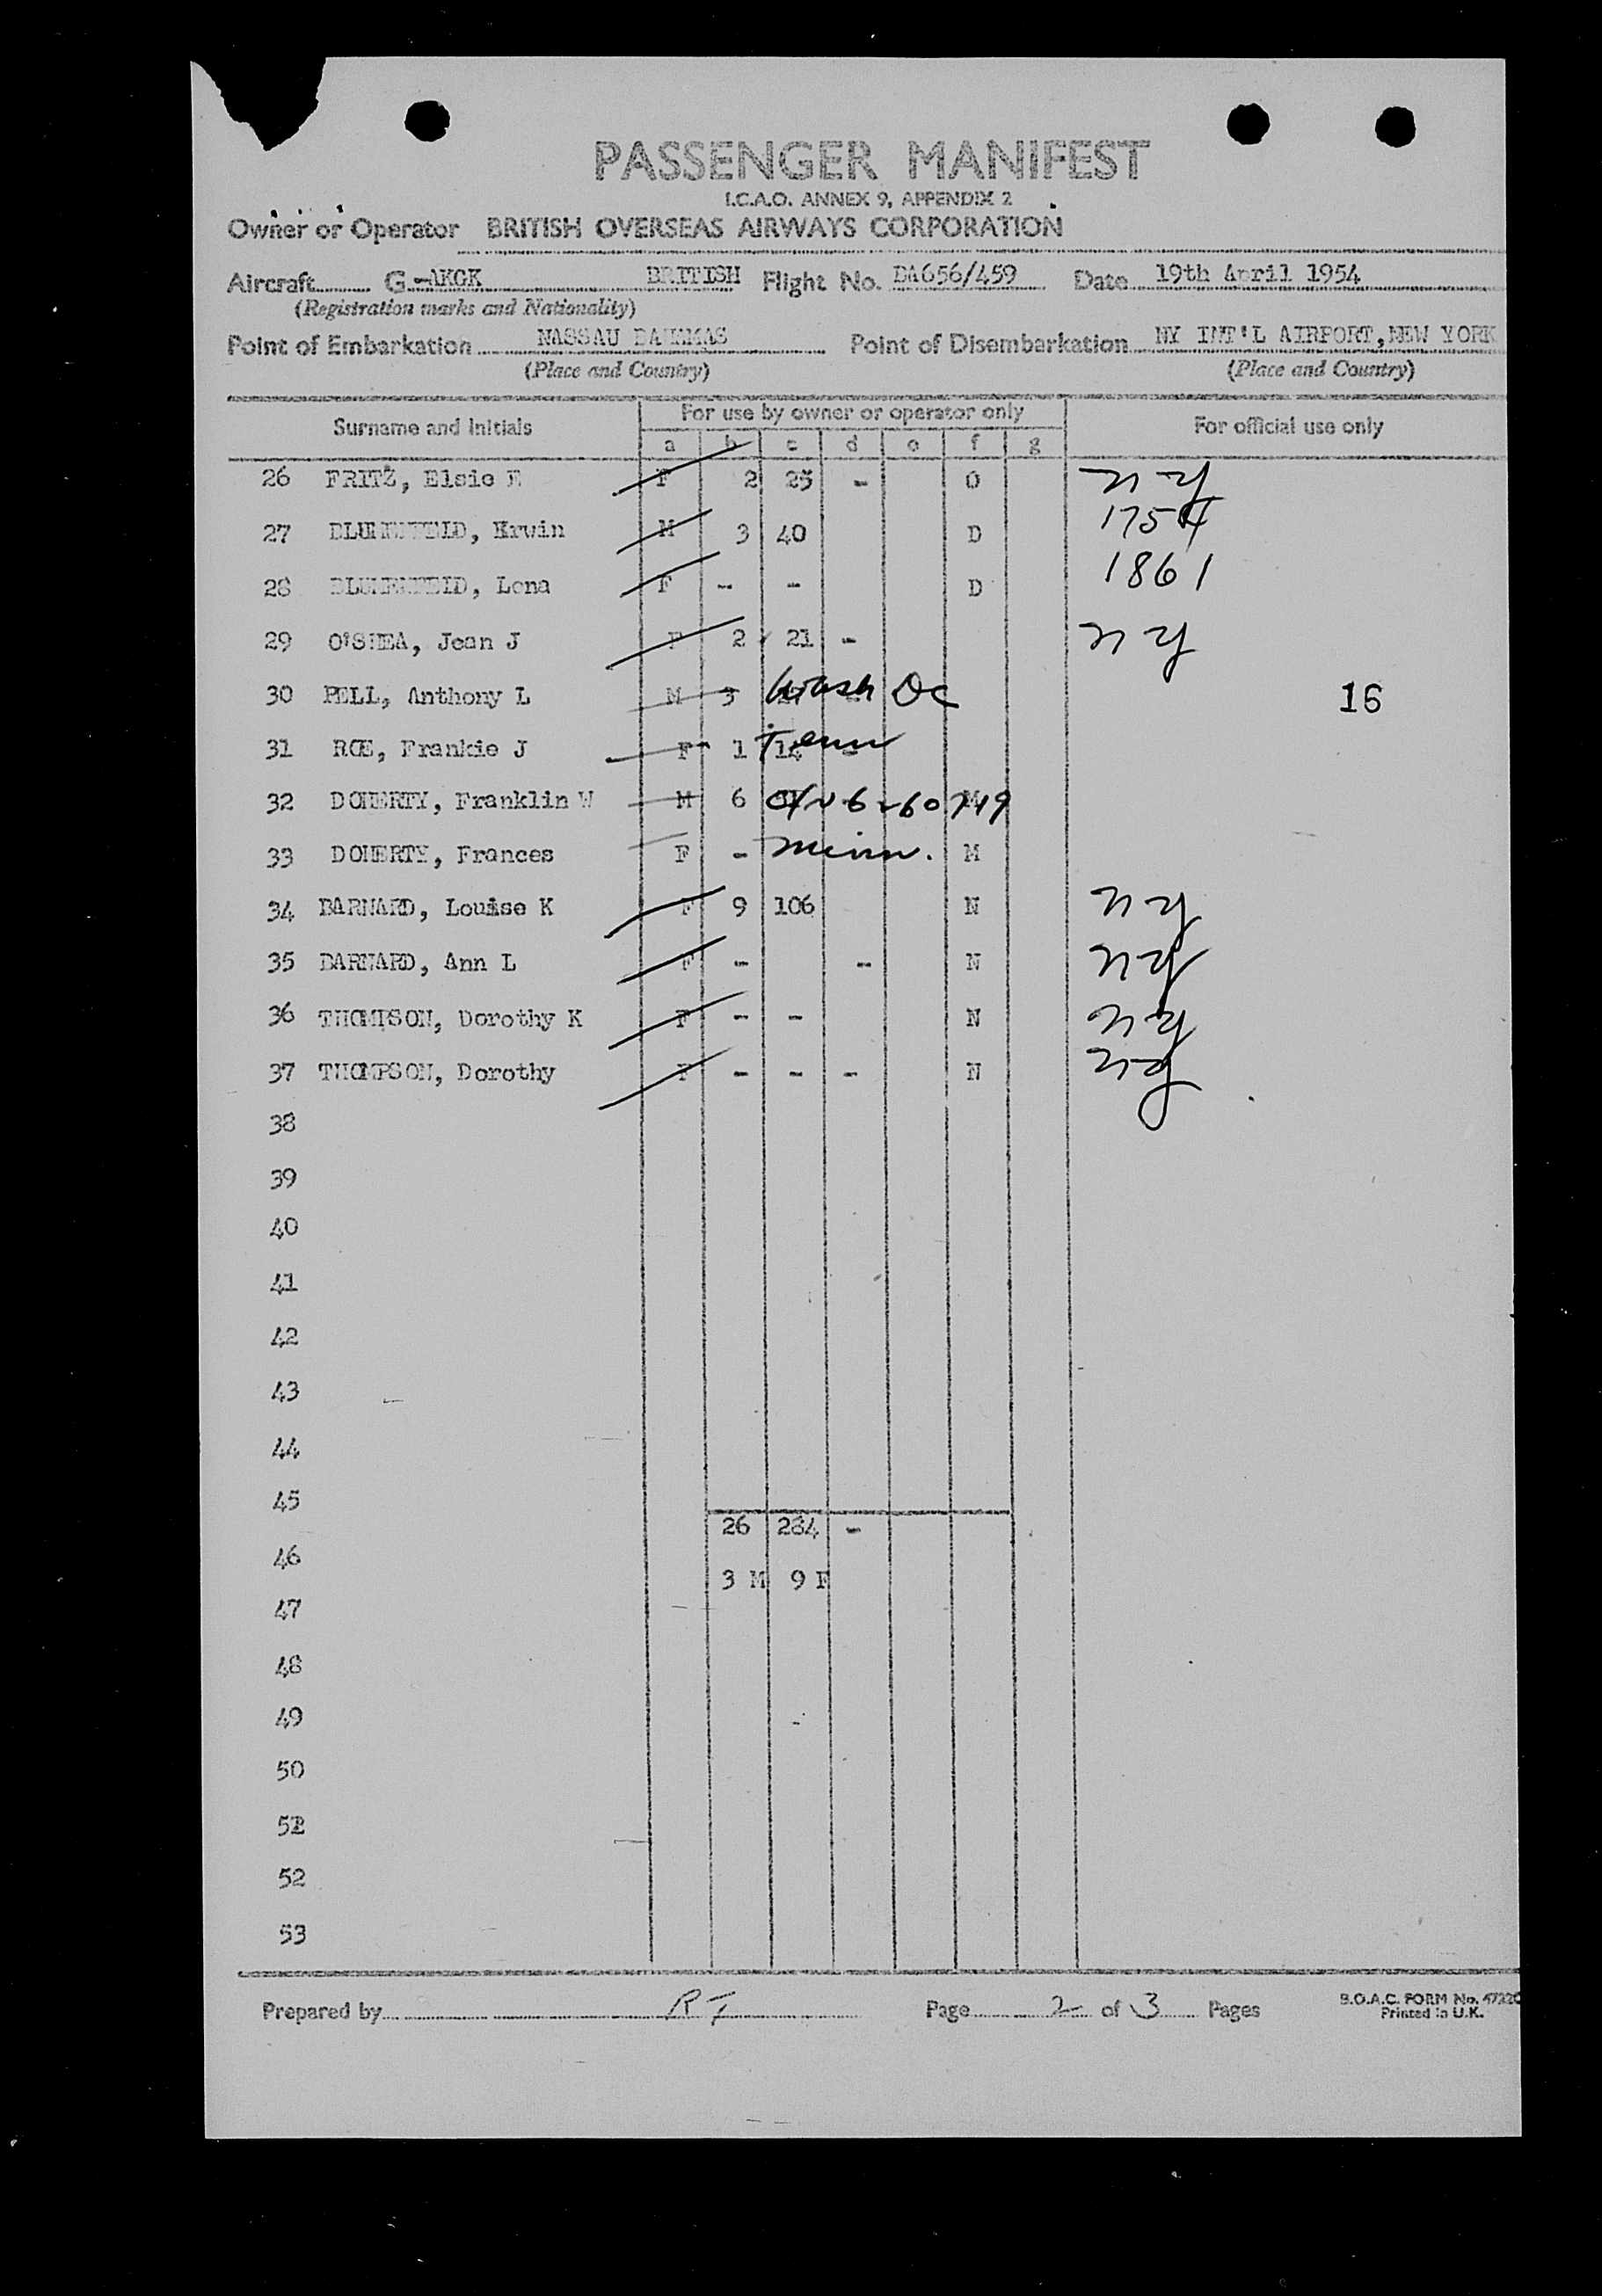 PASSENGER MANIFEST
I.C.A.O. ANNEX 9, APPENDIX 2
Owner or Operator BRITISH OVERSEAS AIRWAYS CORPORATION
Aircraft G-AKGK BRITISH Flight No. BA656/459 Date 19th April 1954
(Registration marks and Nationality)
Point of Embarkation NASSAU BAHAMAS Point of Disembarkation NY INT'L AIRPORT, NEW YORK
(Place and Country) (Place and Country)
Surname and Initials For use by owner or operator only For official use only
a b c d e f g
26 FRITZ, Elsie E F 2 25 - O NY
27 BLUMENFELD, Erwin M 3 40 D 1754
28 BLUMENFELD, Lena F - - D 1861
29 O'SHEA, Jean J F 2 21 - NY
30 PELL, Anthony L M 3 Wash DC 16
31 ROE, Frankie J F 1 14 Tenn
32 DOHERTY, Franklin W M 6 M
33 DOHERTY, Frances F - Minn. M
34 BARNARD, Louise K F 9 106 N NY
35 BARNARD, Ann L F - - N NY
36 THOMPSON, Dorothy K F - - N NY
37 THOMPSON, Dorothy F - - - N NY
38
39
40
41
42
43
44
45
26 284 -
46
3 M 9 F
47
48
49
50
51
52
53
Prepared by RF Page 2 of 3 Pages B.O.A.C. FORM No.
Printed in U.K.